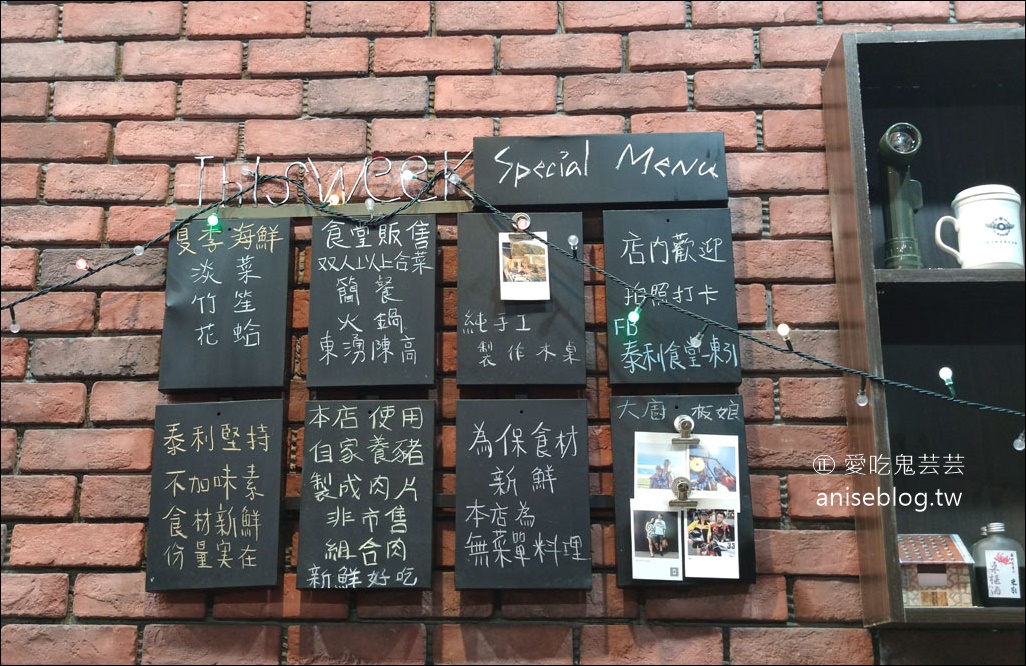 This week
Special Menu
夏季海鮮
淡菜
竹笙
花蛤
食堂販售
双人以上合菜
簡餐
火鍋
東湧陳高
純手工
製作木桌
店內歡迎
拍照打卡
FB
泰利食堂-東引
泰利堅持
不加味素
食材新鮮
份量实在
本店使用
自家養豬
製成肉片
非市售
組合肉
新鮮好吃
為保食材
新鮮
本店為
無菜單料理
大廚 板娘
愛吃鬼芸芸
aniseblog.tw